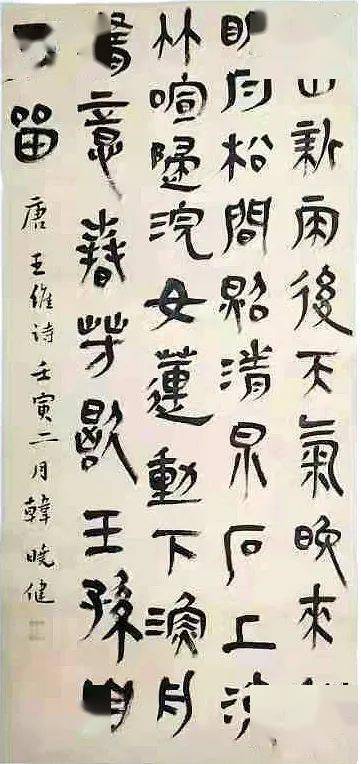 山新雨後天氣晚來
月松間照清泉石上
竹喧歸浣女蓮動下漁舟
意春芳歇王孫
留
唐王維诗壬寅二月韓曉健